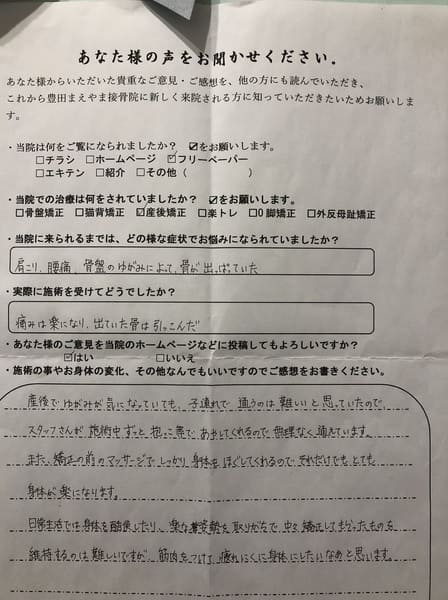 あなた様の声をお聞かせください.
あなた様からいただいた貴重なご意見・ご感想を、他の方にも読んでいただき、
これから豊田まえやま接骨院に新しく来院される方に知っていただきたいためお願いしま
す。
・当院は何をご覧になられましたか？ ☑をお願いします。
□チラシ □ホームページ ☑フリーペーパー
□エキテン □紹介 □その他（ ）
・当院での治療は何をされていましたか？ ☑をお願いします。
□骨盤矯正 □猫背矯正 ☑産後矯正 □楽トレ □O脚矯正 □外反母趾矯正
・当院に来られるまでは、どの様な症状でお悩みになられていましたか？
肩こり、腰痛、骨盤のゆがみによって、骨が出っぱっていた
・実際に施術を受けてどうでしたか？
痛みは楽になり、出ていた骨は引っこんだ
・あなた様のご意見を当院のホームページなどに投稿してもよろしいですか？
☑はい □いいえ
・施術の事やお身体の変化、その他なんでもいいですのでご感想をお書きください。
産後でゆがみが気になっていても、子連れで通うのは難しいと思っていたので、
スタッフさんが施術中ずっと抱っこ等であやしてくれるので無理なく通えています。
また、矯正の前のマッサージでしっかり身体をほぐしてくれるので それだけでもとても
身体が楽になります。
日常生活では身体を酷使したり、楽な姿勢を取りがちで、中々矯正してもらったものを
維持するのは難しいですが、筋肉をつけて、疲れにくい身体にしたいなぁと思います。